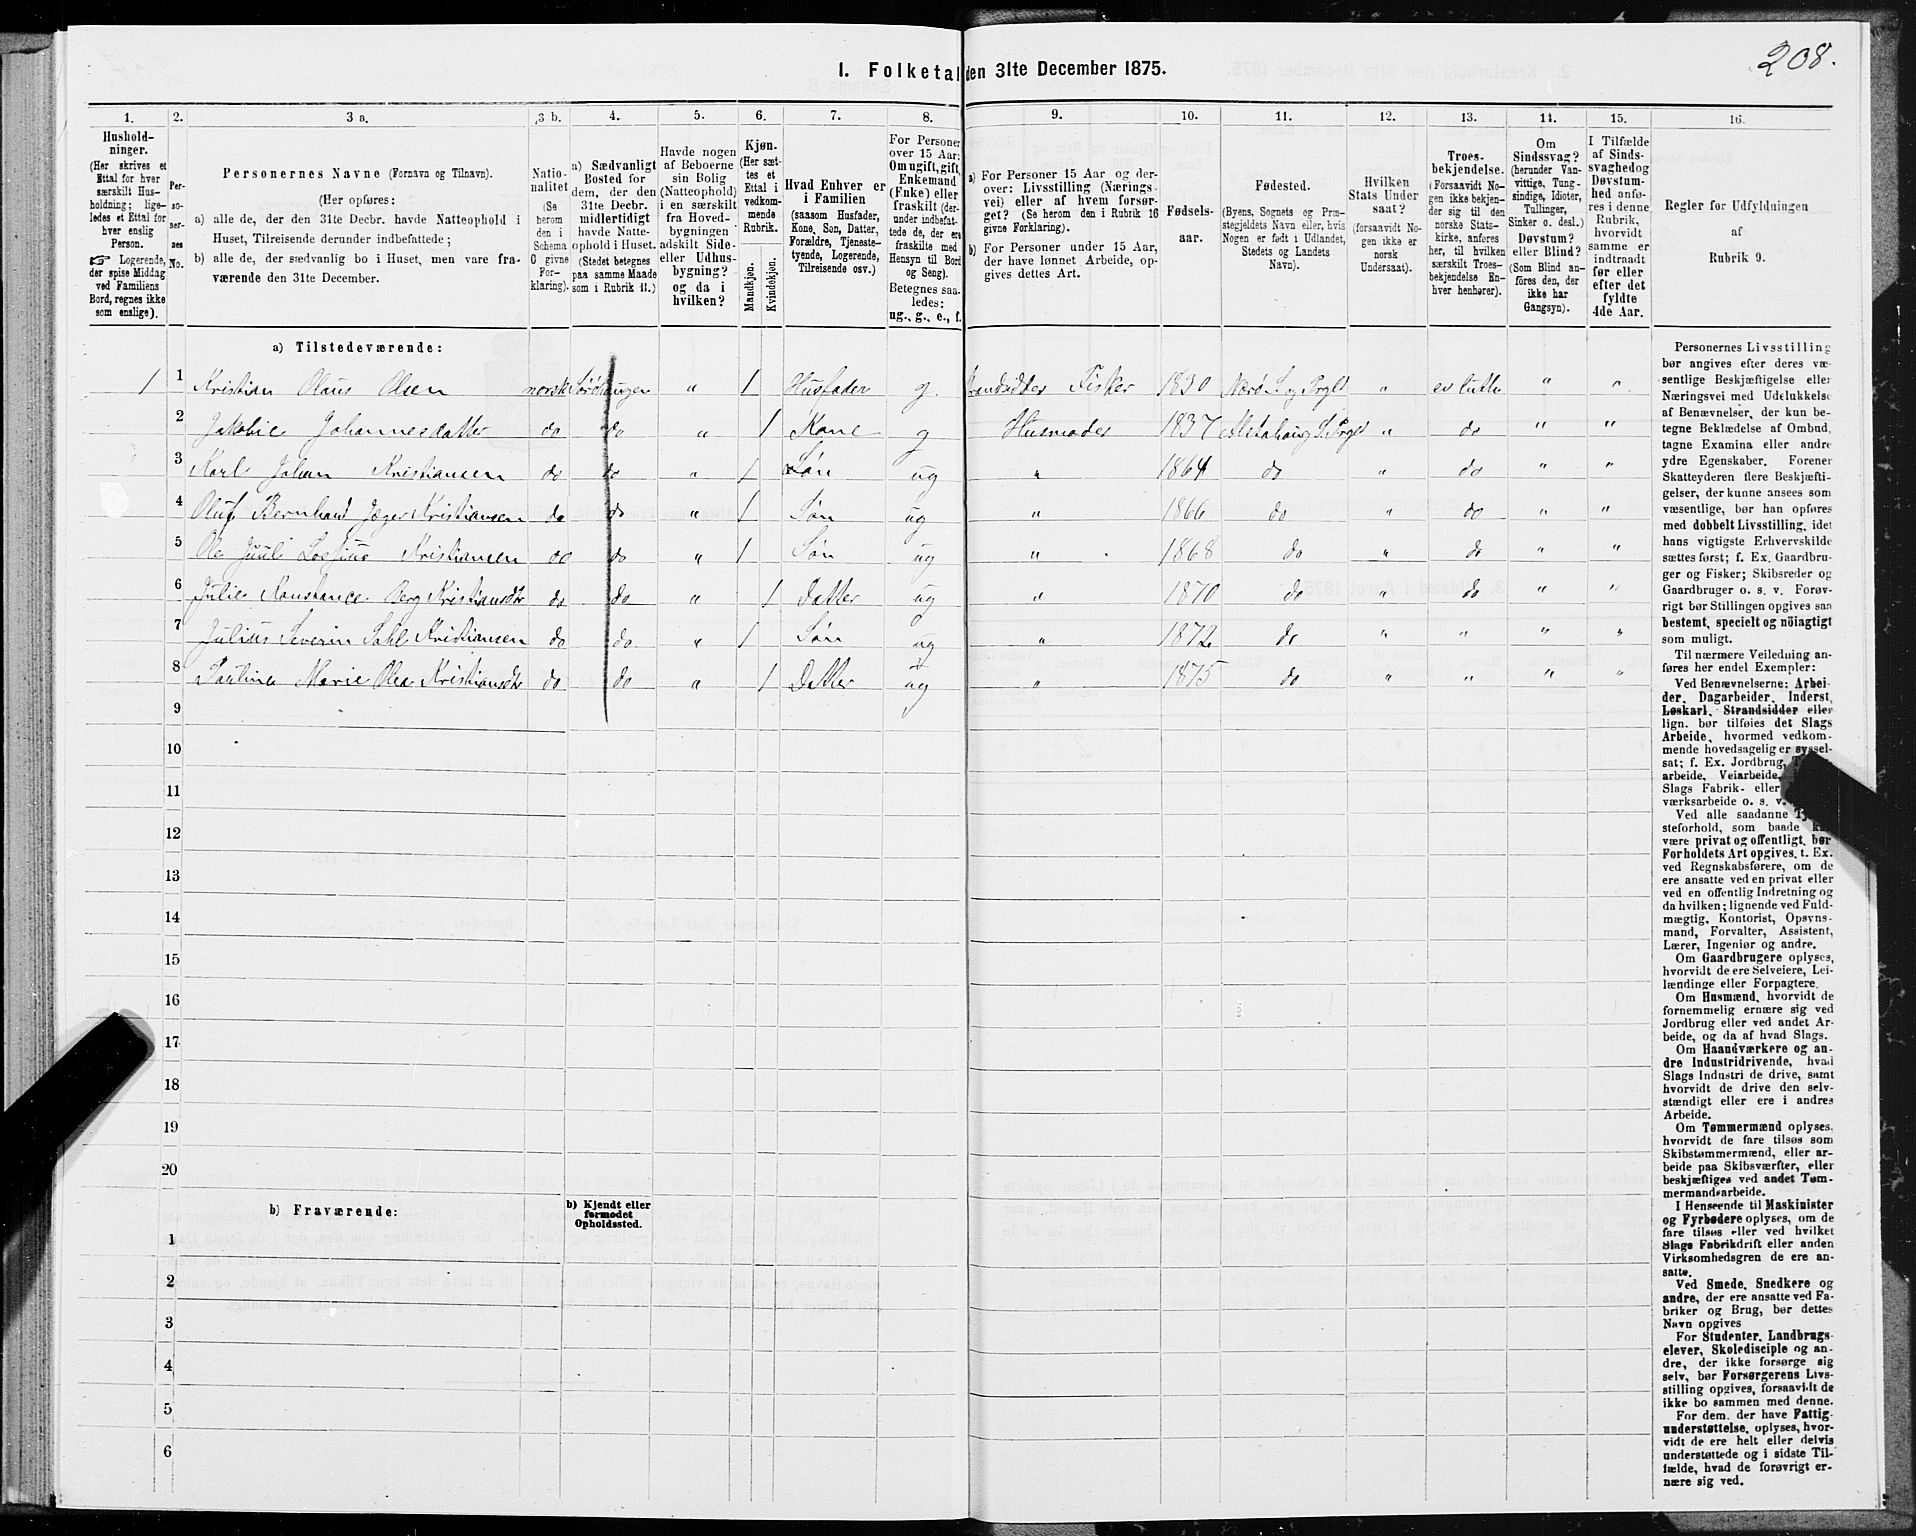 208.
I. Folketal den 31te December 1875.
1. 2. 3 a. 3 b. 4. 5. 6. 7. 8. 9. 10. 11. 12. 13. 14. 15. 16.
Hushold-
ninger.
(Her skrives et
Ettal for hver
særskilt Hus-
holdning; lige-
ledes et Ettal for
hver enslig
Person.
☞ Logerende,
der spise Middag
ved Familiens
Bord, regnes ikke
som enslige).
Per-
so-
ner-
nes
No.
Personernes Navne (Fornavn og Tilnavn).
(Her opføres:
a) alle de, der den 31te Decbr. havde Natteophold i
Huset, Tilreisende derunder indbefattede;
b) alle de, der sædvanlig bo i Huset, men vare fra-
værende den 31te December.
Natio-
nalitet
(Se
herom
den i
Schema
C givne
For-
klaring).
a) Sædvanligt
Bosted for
dem, der den
31te Decbr.
midlertidigt
havde Natte-
ophold i Huset.
(Stedet betegnes
paa samme Maade
som i Rubrik 11.)
Havde nogen
af Beboerne
sin Bolig
(Natteophold)
i en særskilt
fra Hoved-
bygningen
adskilt Side-
eller Udhus-
bygning?
og da i
hvilken?
Kjøn.
(Her sæt-
tes et
Ettal i
vedkom-
mende
Rubrik.
Mandkjøn.
Kvindekjøn.
Hvad Enhver er
i Familien
(saasom Husfader,
Kone, Søn, Datter,
Forældre, Tjeneste-
tyende, Logerende,
Tilreisende osv.)
For Personer
over 15 Aar:
Om ugift, gift,
Enkemand
(Enke) eller
fraskilt (der-
under indbefat-
tede de, der ere
fraskilte med
Hensyn til Bord
og Seng).
Betegnes saa-
ledes:
ug., g., e., f.
a) For Personer 15 Aar og der-
over: Livsstilling (Nærings-
vei) eller af hvem forsør-
get? (Se herom den i Rubrik 16
givne Forklaring).
b) For Personer under 15 Aar,
der have lønnet Arbeide, op-
gives dettes Art.
Fødsels-
aar.
Fødested.
(Byens, Sognets og Præ-
stegjeldets Navn eller, hvis
Nogen er født i Udlandet,
Stedets og Landets
Navn).
Hvilken
Stats Under
saat?
(forsaavidt No-
gen ikke er
norsk
Undersaat).
Troes-
bekjendelse.
(Forsaavidt No-
gen ikke bekjen-
der sig til den
norske Stats-
kirke, anføres
her, til hvilken
særskilt Troes-
bekjendelse En-
hver henhører).
Om
Sindssvag?
(herunder Van-
vittige, Tung-
sindige, Idioter,
Tullinger,
Sinker o. desl.)
Døvstum?
eller Blind?
(Som Blind an-
føres den, der
ikke har
Gangsyn).
I Tilfælde
af Sinds-
svaghed og
Døvstum-
hed anfø-
res i denne
Rubrik,
hvorvidt
samme er
indtraadt
før eller
efter det
fyldte
4de Aar.
Regler for Udfyldningen
af
Rubrik 9.
a) Tilstedeværende:
1 1 Kristian Olaus Olsen norsk " 1 Husfader g Strandsidder Fisker 1830 Nærø S og Prgld " ev luth " "
2 Jakobie Johannesdatter do do " 1 Kone g Husmoder 1837 Alstahaug S Prgld " do " "
3 Karl Johan Kristiansen do do " 1 Søn ug " 1864 do " do " "
4 Oluf Bernhard Jæger Kristiansen do do " 1 Søn ug " 1866 do " do " "
5 Ole Juul Lossius Kristiansen do do " 1 Søn ug " 1868 do " do " "
6 Julie Konstance Berg Kristiansdtr do do " 1 Datter ug " 1870 do " do " "
7 Julius Severin Kristiansen do do " 1 Søn ug " 1872 do " " " "
8 Paulina Marie Olea Kristiansdtr do do " 1 Datter ug " 1875 do " " " "
9
10
11
12
13
14
15
16
17
18
19
20
b) Fraværende:
b) Kjendt eller
formodet
Opholdssted.
1
2
3
4
5
6
Personernes Livsstilling
bør angives efter deres væ-
sentlige Beskjæftigelse eller
Næringsvei med Udelukkelse
af Benævnelser, der kun be-
tegne Beklædelse af Ombud,
tagne Examina eller andre
ydre Egenskaber. Forener
Skatteyderen flere Beskjæfti-
gelser, der kunne ansees som
væsentlige, bør han opføres
med dobbelt Livsstilling, idet
hans vigtigste Erhvervskilde
sættes først; f. Ex. Gaardbru-
ger og Fisker; Skibsreder og
Gaardbruger o. s. v. Forøv-
rigt bør Stillingen opgives saa
bestemt, specielt og nöiagtigt
som muligt.
Til nærmere Veiledning an-
føres her endel Exempler:
Ved Benævnelserne: Arbei-
der, Dagarbeider, Inderst,
Løskarl, Strandsidder eller
lign. bør tilføies det Slags
Arbeide, hvormed vedkom-
mende hovedsagelig er syssel-
sat; f. Ex. Jordbrug,
arbeide, Veiarbeide,
Slags Fabrik- eller
værksarbeide o. s. v.
Ved alle saadanne Tje-
steforhold, som baade kan
være privat og offentligt, bør
Forholdets Art opgives, t. Ex.
ved Regnskabsførere, om de
ere ansatte ved en privat eller
ved en offentlig Indretning og
da hvilken; lignende ved Fuld-
mægtig, Kontorist, Opsyns-
mand, Forvalter, Assistent,
Lærer, Ingeniør og andre.
Om Gaardbrugere oplyses,
hvorvidt de ere Selveiere, Lei-
lændinge eller Forpagtere.
Om Husmænd, hvorvidt de
fornemmelig ernære sig ved
Jordbrug eller ved andet Ar-
beide, og da af hvad Slags.
Om Haandværkere og an-
dre Industridrivende, hvad
Slags Industri de drive, samt
hvorvidt de drive den selv-
stændigt eller ere i andres
Arbeide.
Om Tømmermænd oplyses,
hvorvidt de fare tilsøs som
Skibstømmermænd, eller ar-
beide paa Skibsværfter, eller
beskjæftiges ved andet Tøm-
mermandsarbeide.
I Henseende til Maskinister
og Fyrbødere oplyses, om de
fare tilsøs eller ved hvilket
Slags Fabrikdrift eller anden
Virksomhedsgren de ere an-
satte.
Ved Smede, Snedkere og
andre, der ere ansatte ved Fa-
briker og Brug, bør dettes
Navn opgives
For Studenter, Landbrugs-
elever, Skoledisciple og an-
dre, der ikke forsørge sig
selv, bør Forsørgerens Livs-
stilling opgives, forsaavidt de
ikke bo sammen med denne.
For dem, der have Fattig-
understøttelse, oplyses, hvor-
vidt de ere helt eller delvis
understøttede og i sidste Til-
fælde, hvad de forøvrigt er-
nære sig ved.